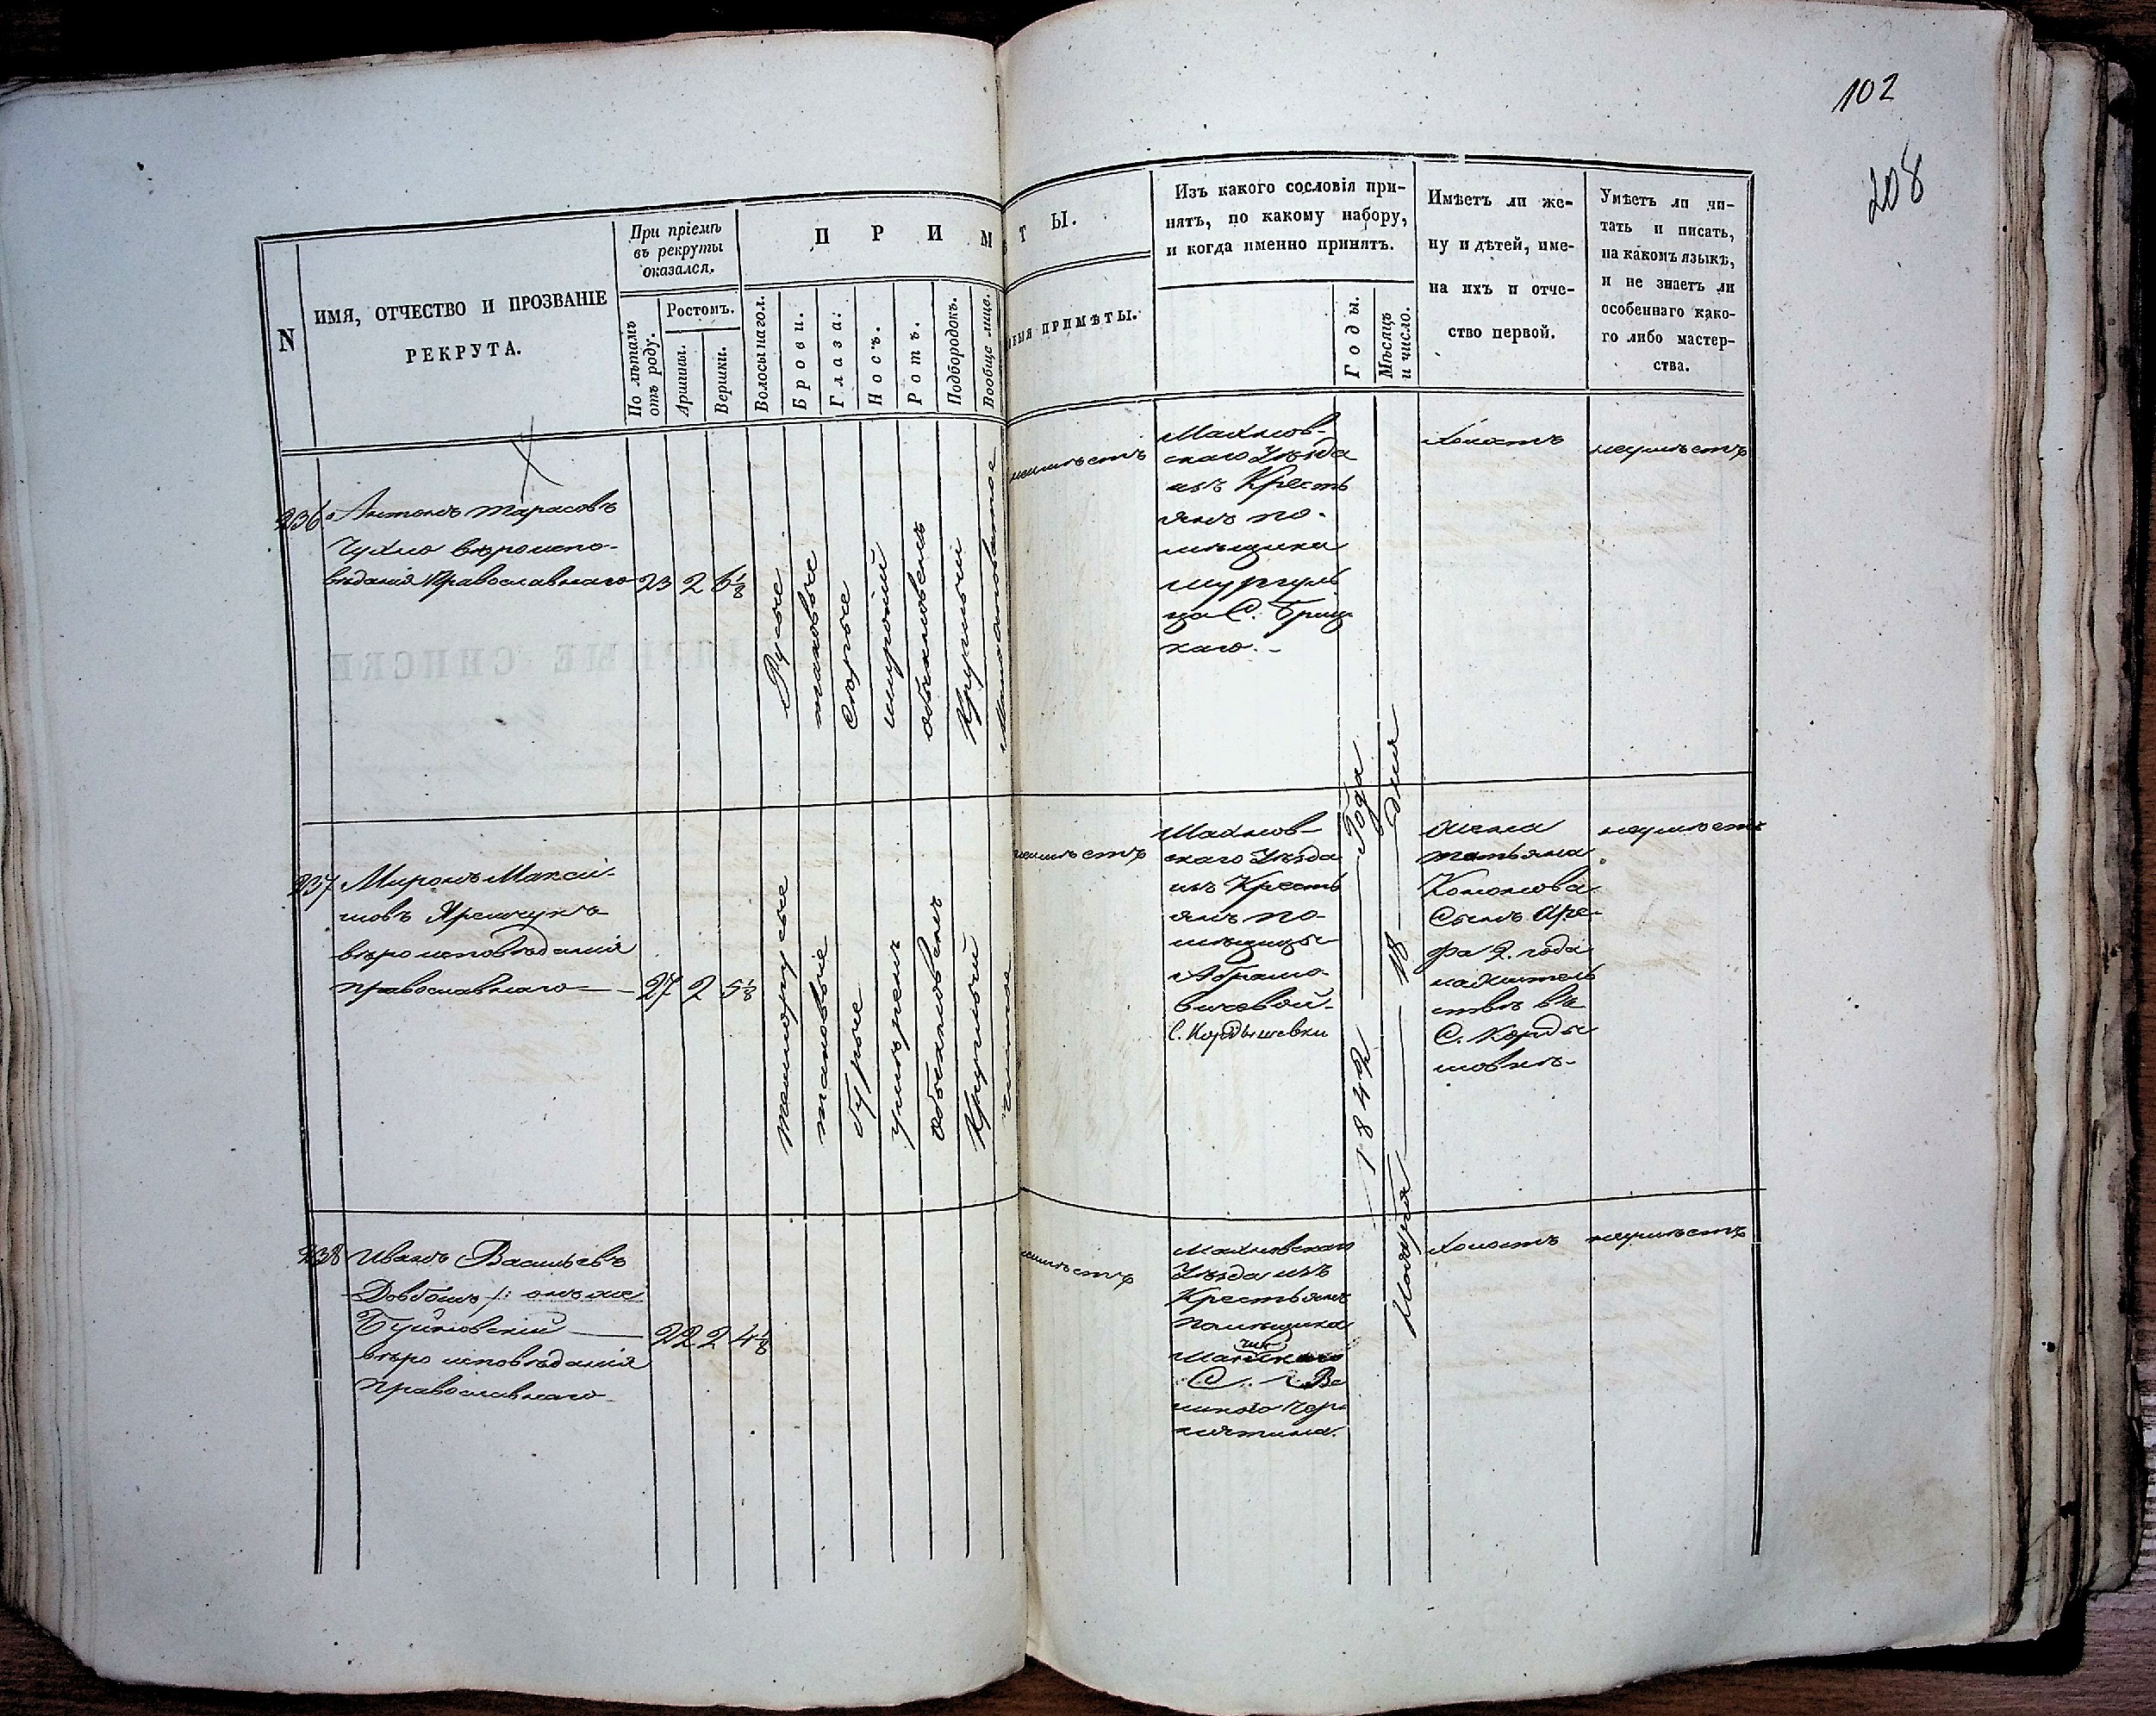 102
208
N
ИМЯ, ОТЧЕСТВО И ПРОЗВАНІЕ
РЕКРУТА.
При пріемѣ
въ рекруты
оказался.
По лѣтамъ
отъ роду.
Ростомъ.
Аршины.
Вершки.
П Р И М Ѣ Т Ы.
Волосы на гол.
Брови.
Глаза:
Носъ.
Ротъ.
Подбородокъ.
Вообще лице.
ПРИМѢТЫ.
Изъ какого сословія при-
нятъ, по какому набору,
и когда именно принятъ.
Годы.
Мѣсяцъ
и число.
Имѣетъ ли же-
ну и дѣтей, име-
на ихъ и отче-
ство первой.
Умѣетъ ли чи-
тать и писать,
на какомъ языкѣ,
и не знаетъ ли
особеннаго како-
го либо мастер-
ства.
236.
Антонъ Тарасовъ
Чухно вѣроиспо-
вѣданія Православнаго
23 2 6⅛
Русые
таковые
Сѣрые
широкій
обыкновенъ
Круглый
неимѣетъ
Махнов-
скаго Уѣзда
изъ Кресть
янъ по-
мѣщика
холостъ
неумѣетъ
237
Миронъ Макси-
мовъ Яремчукъ
вѣроисповѣданія
православнаго
27 2 5⅛
темнорусые
таковые
бурые
умѣренъ
обыкновенъ
Круглый
чистое
неимѣетъ
Махнов-
скаго Уѣзда
изъ Кресть
янъ по-
мѣщицы
Абрамо-
вичевой
С. Кордышевки
1842 Года
Января 18 дня
Жена
татьяна
Кононова
Сынъ Аре-
фа 2. года
нажитель
ствѣ въ
С. Корды
шовкѣ-
неумѣетъ
238
Иванъ Васильевъ
Довбышъ /: онъ же
Буйновскій
вѣроисповѣданія
православнаго
22 2 4⅛
неимѣетъ
Махновскаго
Уѣзда изъ
Крестьянъ
помѣщика
С. Ве
ликого Чер-
нятина.
холостъ
неумѣетъ